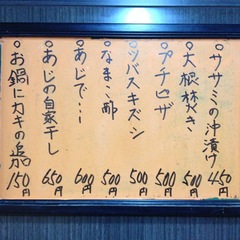 ○ササミの沖漬け 450円
○大根炊き 500円
○プチピザ 500円
○ツバスキズシ 500円
○なまこ酢 500円
○あじで… 600円
○あじの自家干し 650円
○お鍋にカキの追加 150円